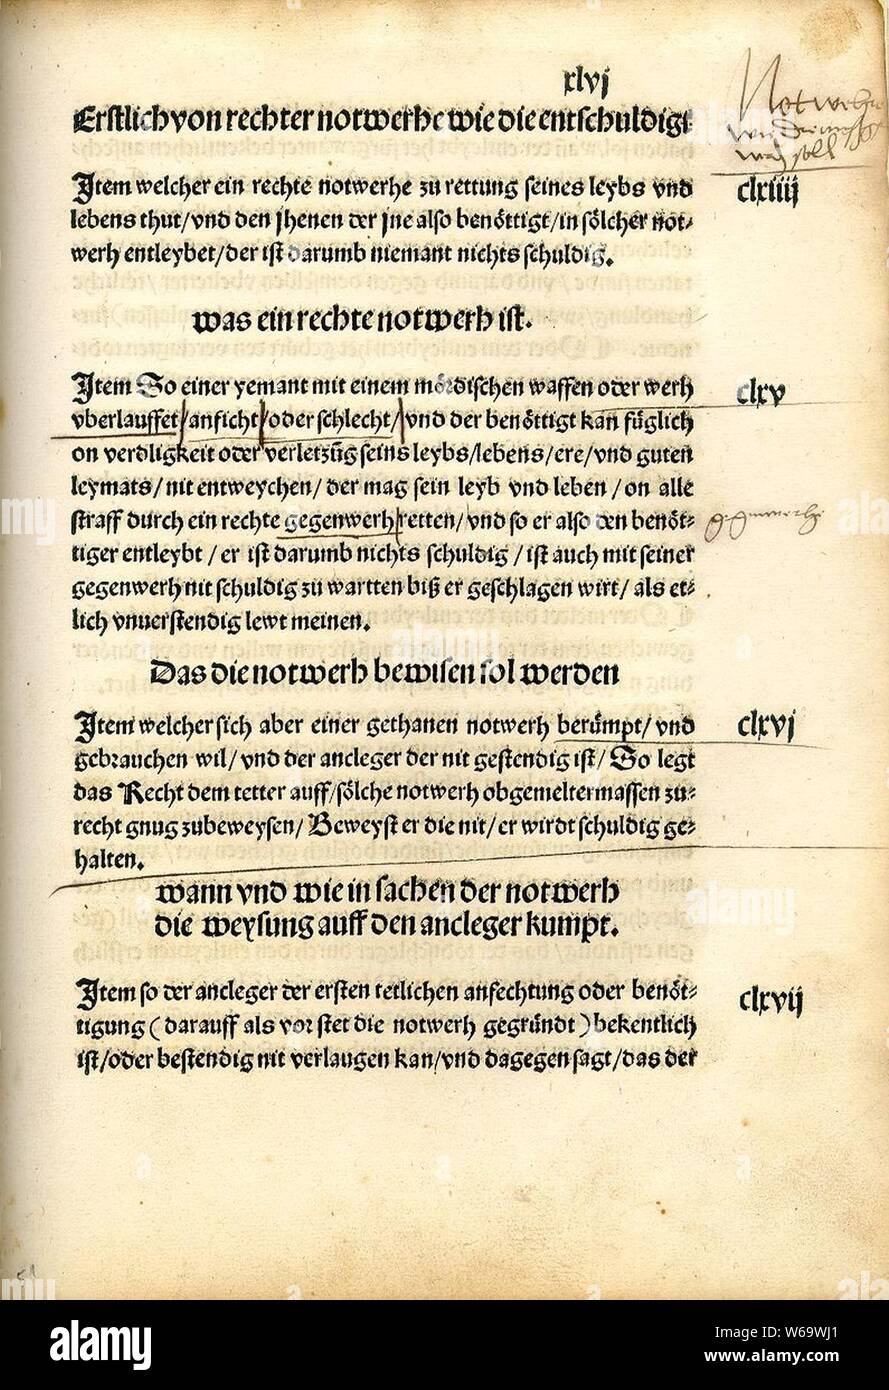 xlvj
Erstlich von rechter notwerhe wie die entschuldigt
Item welcher ein rechte notwerhe zu rettung seines leybs vnd clxiiij
lebens thut/vnd den jhenen der jne also benöttigt/in sölcher not⸗
werh entleybet/der ist darumb niemant nichts schuldig.
was ein rechte notwerh ist.
Item So einer yemant mit einem mördischen waffen oder werh clxv
vberlauffet/anficht/oder schlecht/vnd der benöttigt kan füglich
on verdligkeit oder verletzũg seins leybs/lebens/ere/vnd guten
leymats/nit entweychen/der mag sein leyb vnd leben/on alle
straff durch ein rechte gegenwerh retten/vnd so er also den benöt⸗
tiger entleybt/er ist darumb nichts schuldig/ist auch mit seiner
gegenwerh nit schuldig zu wartten biß er geschlagen wirt/als et⸗
lich vnuerstendig lewt meinen.
Das die notwerh bewisen sol werden
Item welcher sich aber einer gethanen notwerh berümpt/vnd clxvj
gebrauchen wil/vnd der ancleger der nit gestendig ist/So legt
das Recht dem tetter auff/sölche notwerh obgemelter massen zu⸗
recht gnug zubeweysen/Beweyst er die nit/er wirdt schuldig ge⸗
halten.
wann vnd wie in sachen der notwerh
die weysung auff den ancleger kumpt.
Item so der ancleger der ersten tetlichen anfechtung oder benöt⸗ clxvij
tigung (darauff als vor stet die notwerh gegründt) bekentlich
ist/oder bestendig nit verlaugen kan/vnd dagegen sagt/das der
alamy
Image ID: W69WJ1
www.alamy.com